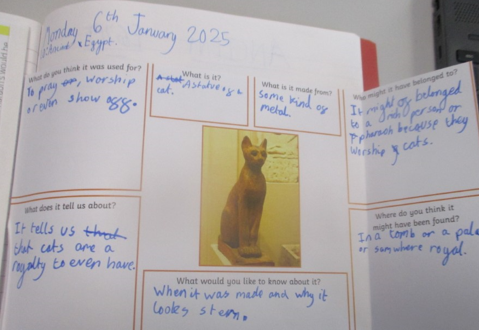 Monday 6th January 2025
Egypt.
What do you think it was used for?
To pray or, worship
or even show off.
What is it?
A statue of a
cat.
What is it made from?
Some kind of
metal.
might it have belonged to?
It might of belonged
to a rich person or
pharaoh because they
worship cats.
What does it tell us about?
It tells us that
that cats are a
royalty to even have.
Where do you think it
might have been found?
In a tomb or a pala
or sumwhere royal.
What would you like to know about it?
When it was made and why it
looks stern.